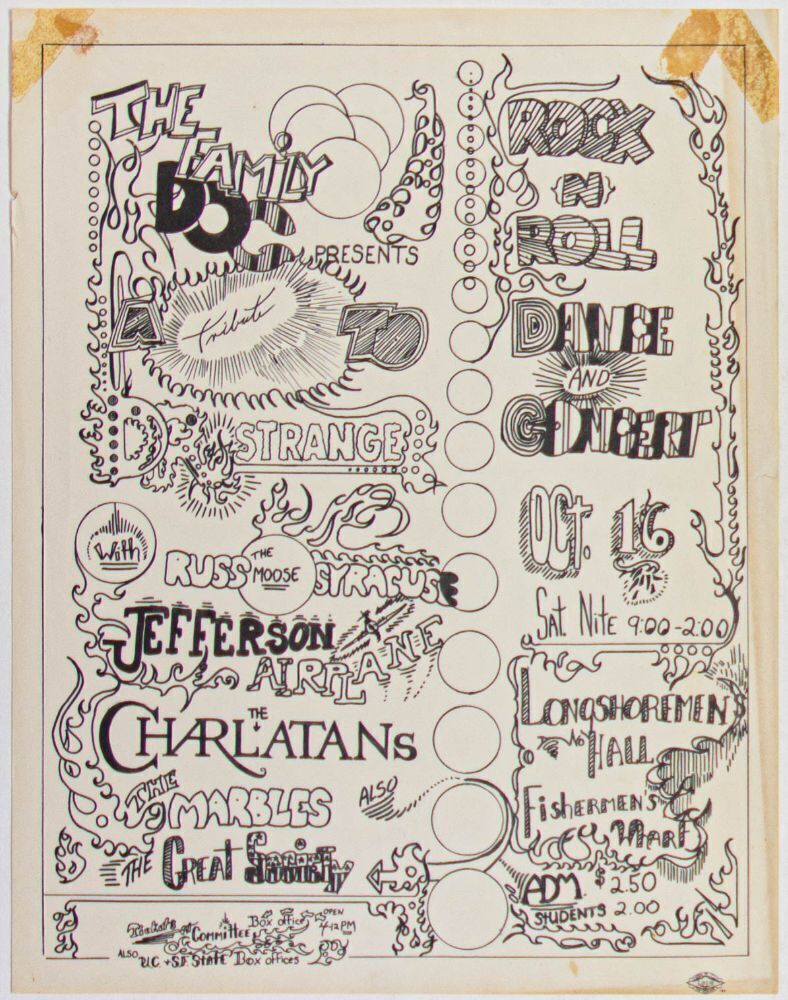 THE
FAMILY
DOG
PRESENTS
A tribute TO
DR. STRANGE
With
RUSS THE MOOSE SYRACUSE
JEFFERSON
AIRPLANE
THE
CHARLATANS
THE
MARBLES
ALSO
THE GREAT SOCIETY
Box office OPEN
AT COMMITTEE 4-12 PM
ALSO U.C. + S.F. STATE Box offices
ROCK
N
ROLL
DANCE
AND
CONCERT
OCT. 16
SAT. NITE 9:00-2:00
LONGSHOREMEN'S
HALL
FISHERMEN'S
WHARF
ADM. $2.50
STUDENTS 2.00